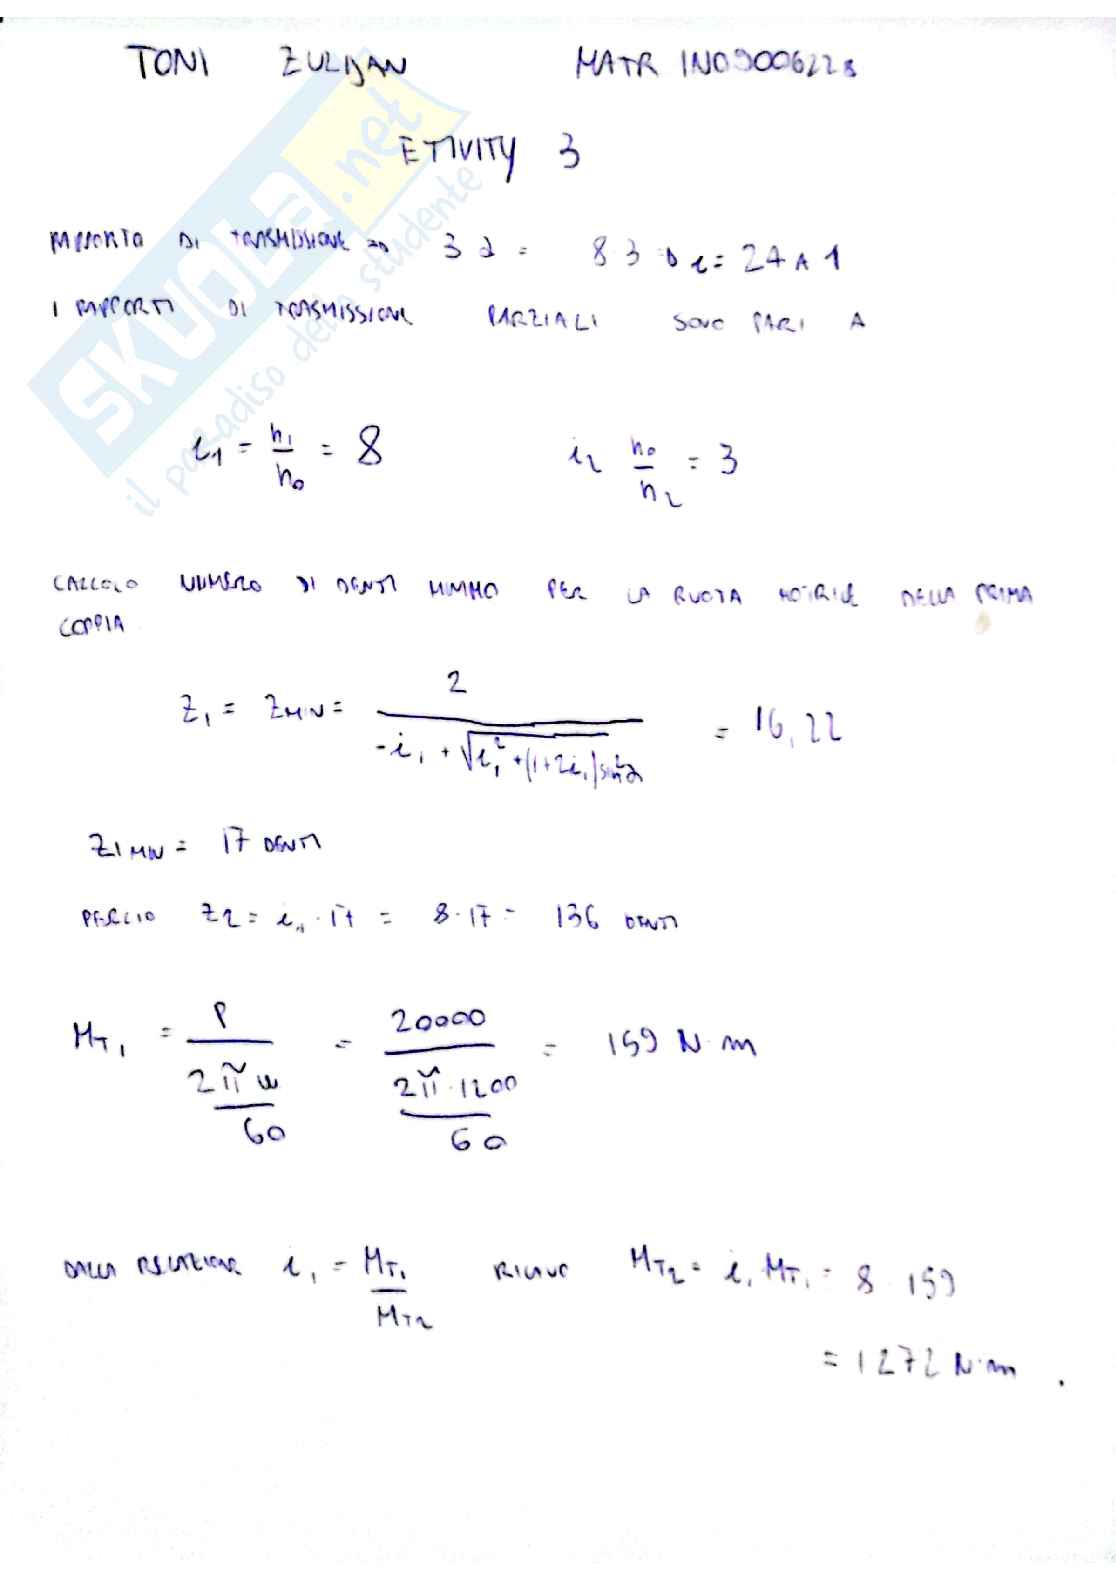 TONI ZULIJAN MATR IN09006228
ETIVITY 3
RAPPORTO DI TRASMISSIONE => 3 = 8 3 i = 24 A 1
I RAPPORTI DI TRASMISSIONE PARZIALI SONO PARI A
i1 = n1/n0 = 8 i2 n0/n2 = 3
CALCOLO NUMERO DI DENTI MINIMO PER LA RUOTA MOTRICE DELLA PRIMA
COPPIA
Z1 = ZMIN = 2/(-i1 + √(i1² + (1+2i1) sin²α)) = 16,22
Z1MIN = 17 DENTI
PERCIO Z2 = i1 · 17 = 8·17 = 136 DENTI
MT1 = P/(2πw/60) = 20000/(2π·1200/60) = 159 N·m
DALLA RELAZIONE i1 = MT1/MT2 RICAVO MT2 = i1 MT1 = 8 159
= 1272 N·m .
SKUOLA.net
il paradiso dello studente